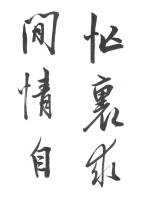 忙裏求
間情自